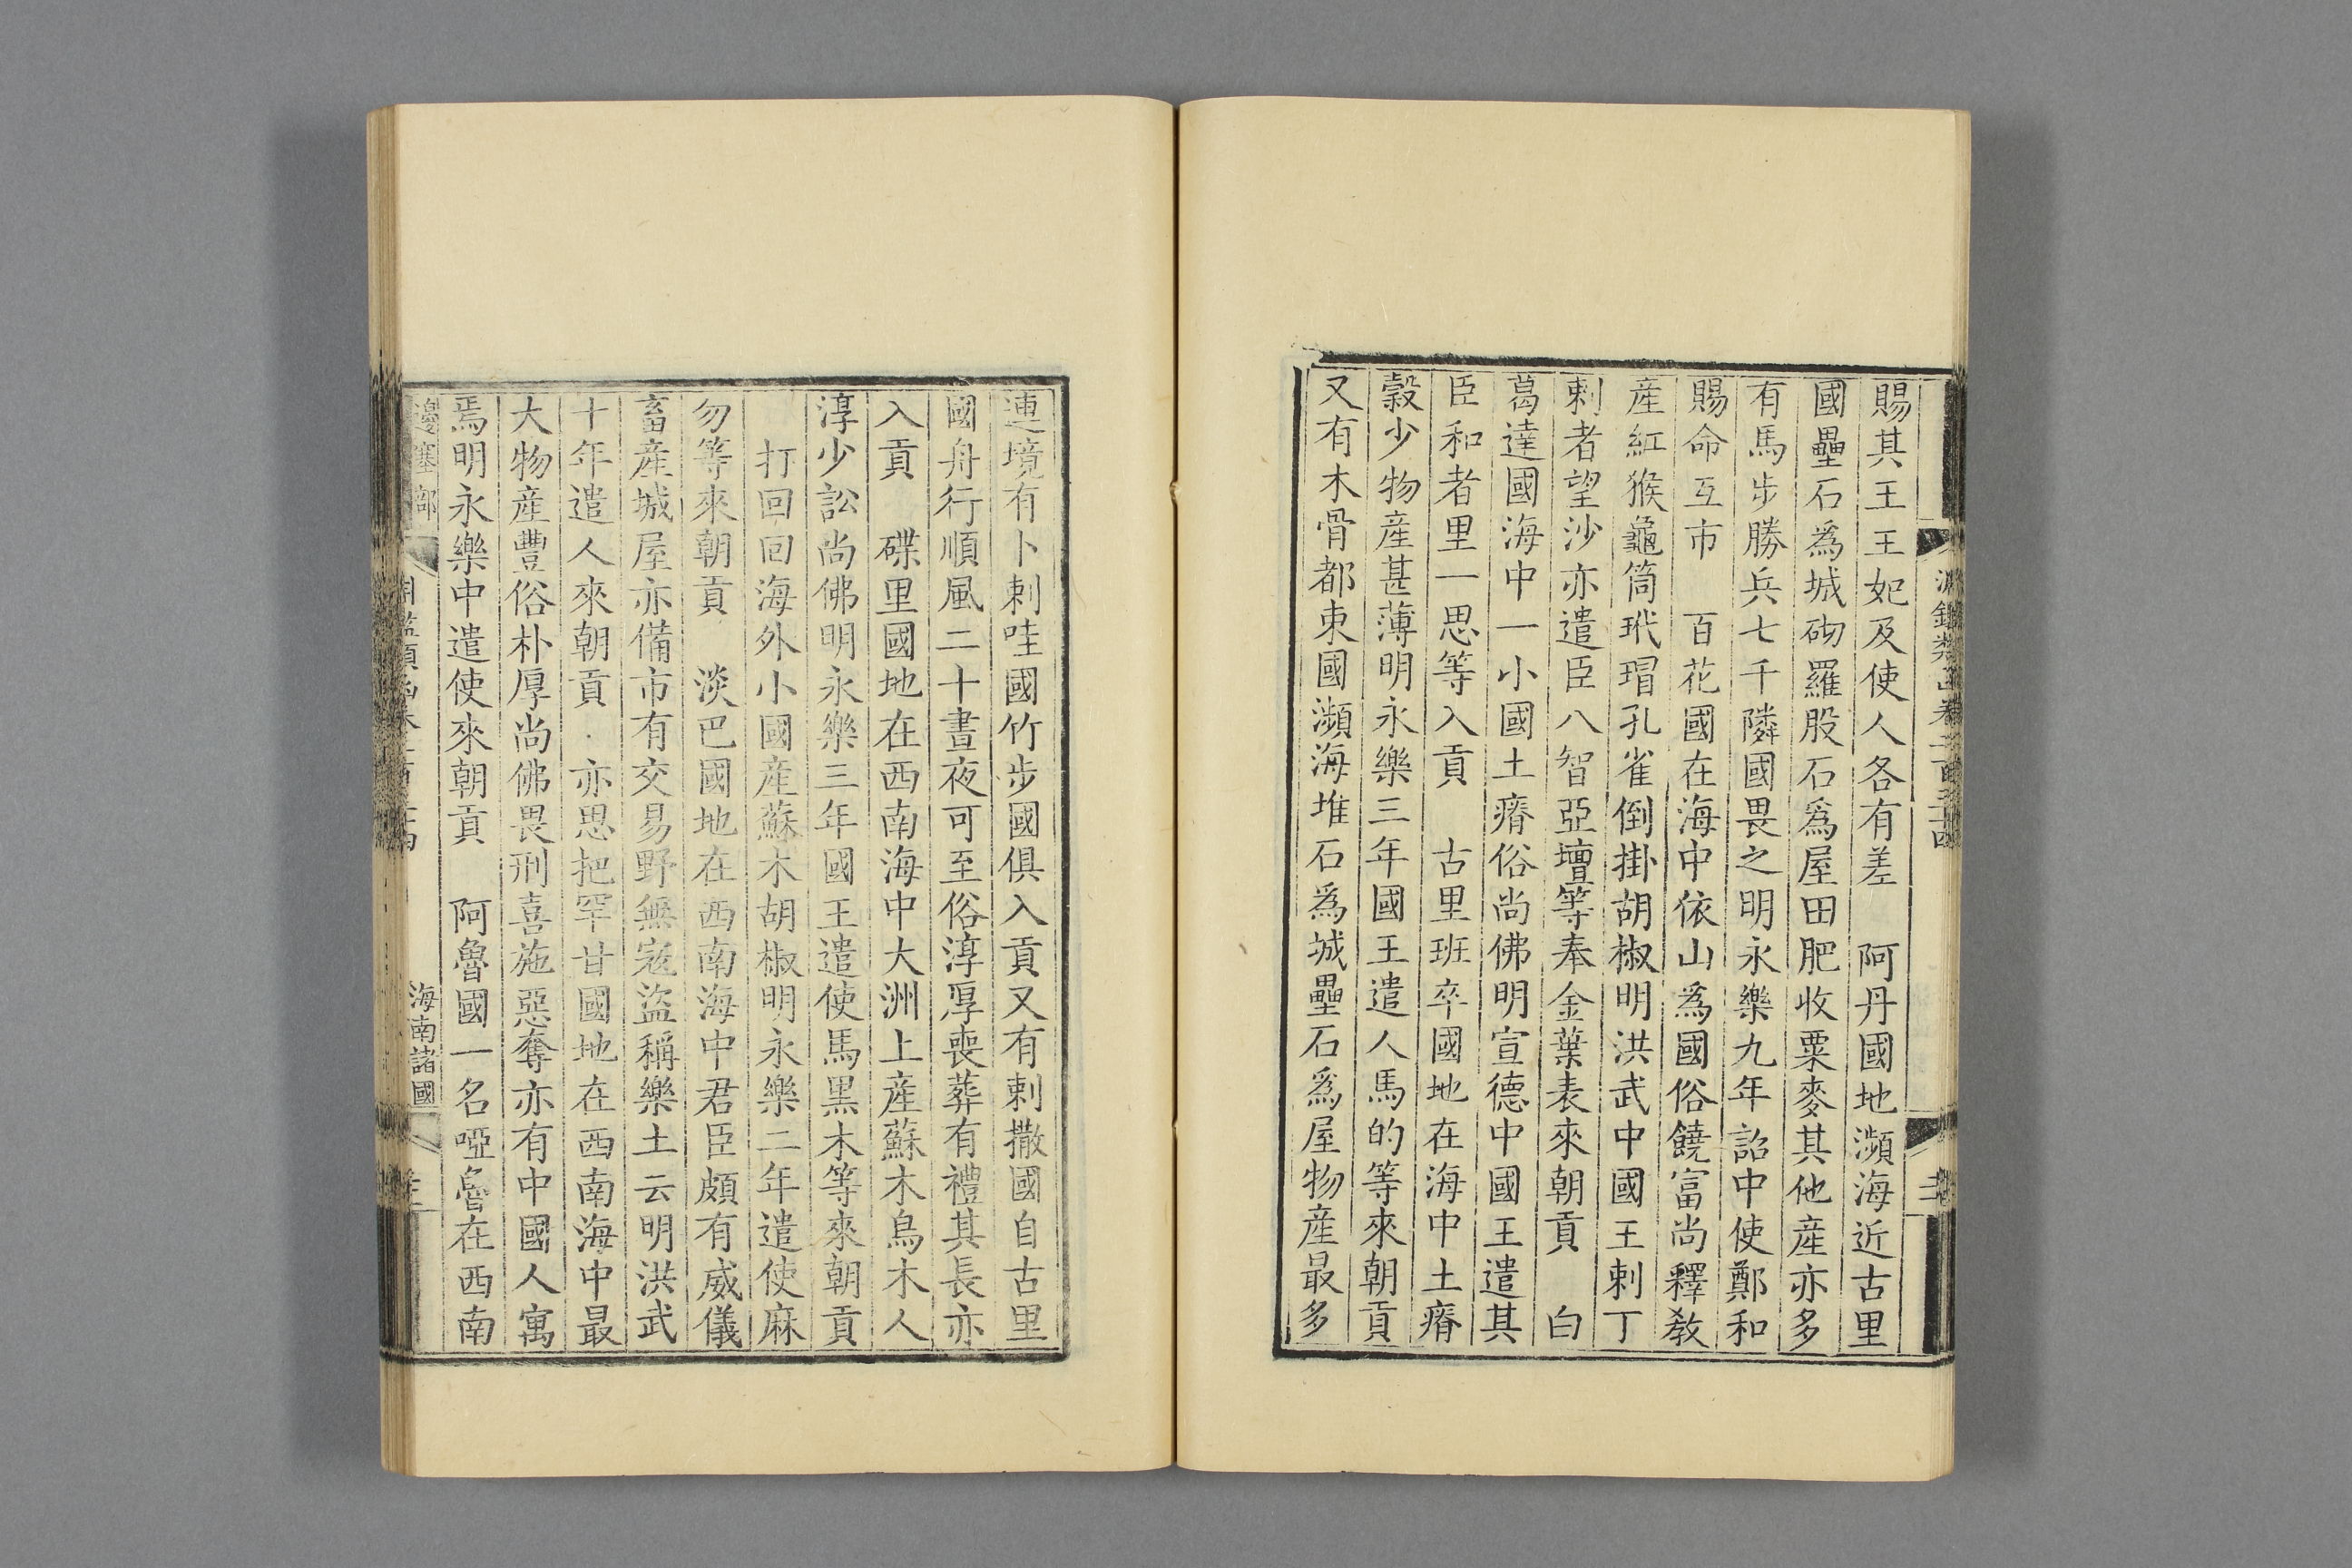 賜其王王妃及使人各有差　阿丹國地瀕海近古里
國壘石爲城砌羅股石爲屋田肥收粟麥其他産亦多
有馬步勝兵七千隣國畏之明永樂九年詔中使鄭和
賜命互市　百花國在海中依山爲國俗饒富尚釋教
産紅猴龜筒玳瑁孔雀倒掛胡椒明洪武中國王剌丁
剌者望沙亦遣臣八智亞壇等奉金葉表來朝貢　白
葛達國海中一小國土瘠俗尚佛明宣德中國王遣其
臣和者里一思等入貢　古里班卒國地在海中土瘠
穀少物産甚薄明永樂三年國王遣人馬的等來朝貢
又有木骨都束國瀕海堆石爲城壘石爲屋物産最多
連境有卜剌哇國竹步國俱入貢又有剌撒國自古里
國舟行順風二十晝夜可至俗淳厚喪葬有禮其長亦
入貢　碟里國地在西南海中大洲上産蘇木烏木人
淳少訟尚佛明永樂三年國王遣使馬黑木等來朝貢
打回回海外小國産蘇木胡椒明永樂二年遣使麻
勿等來朝貢　淡巴國地在西南海中君臣頗有威儀
畜産城屋亦備市有交易野無寇盜稱樂土云明洪武
十年遣人來朝貢　亦思把罕甘國地在西南海中最
大物産豐俗朴厚尚佛畏刑喜施惡奪亦有中國人寓
焉明永樂中遣使來朝貢　阿魯國一名啞魯在西南
邊塞部
海南諸國